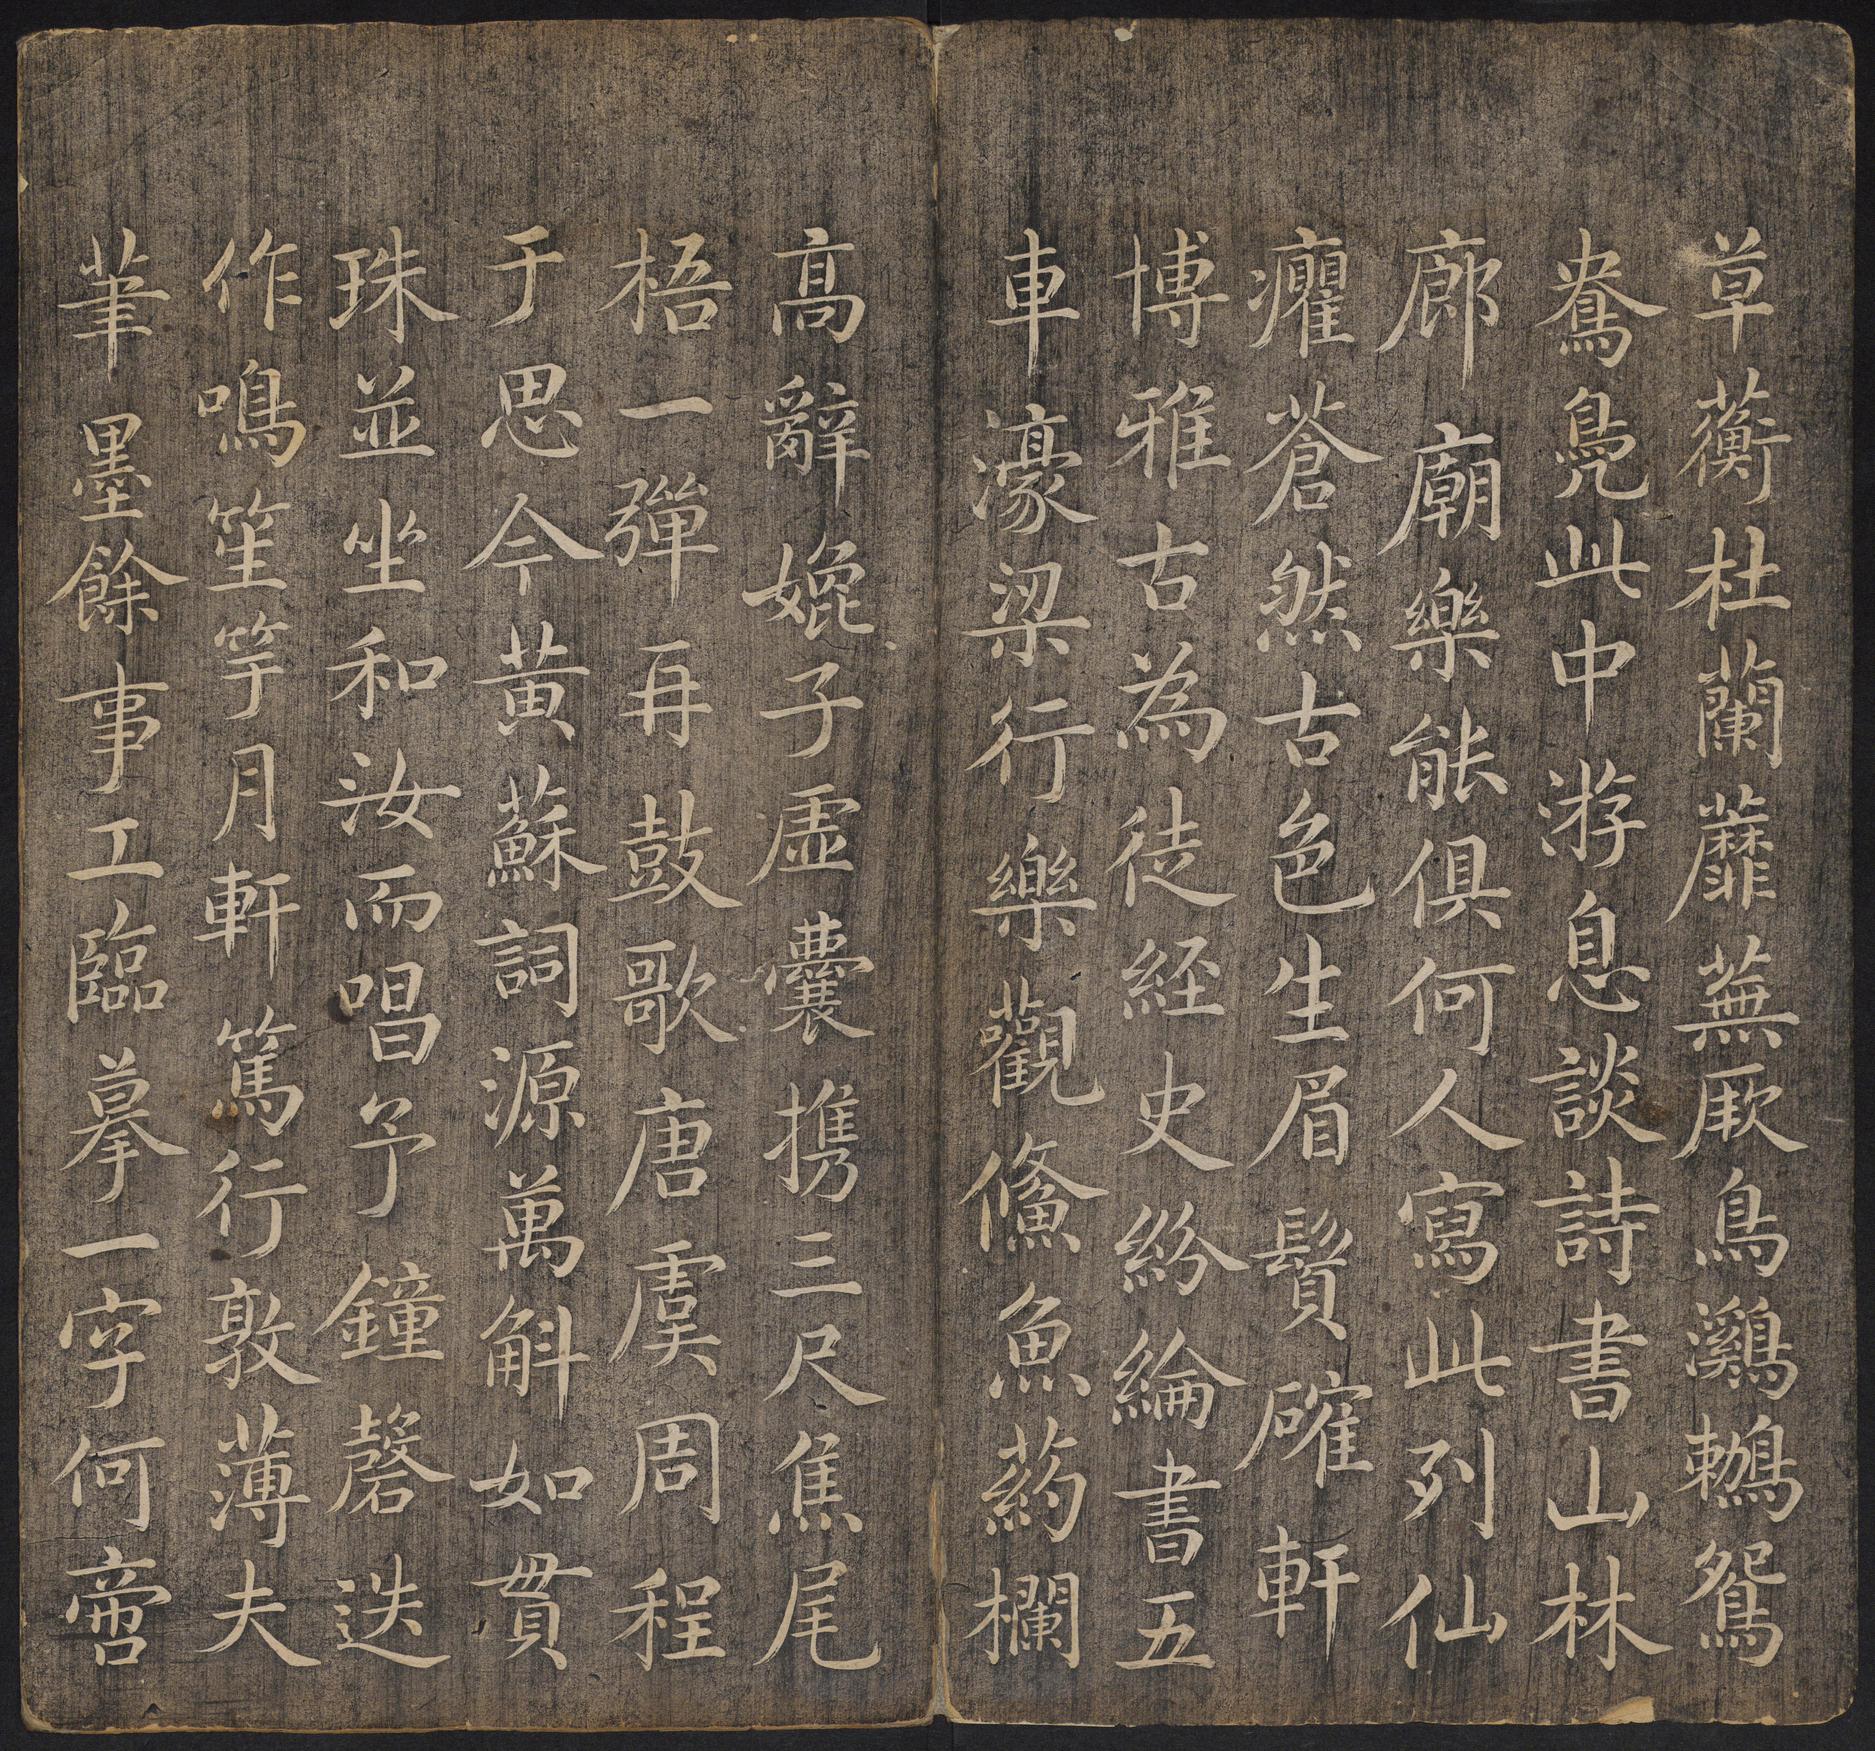 草蘅杜蘭蘼蕪厥鳥鸂鷘鴛
鴦鳧此中游息談詩書山林
廊廟樂能俱何人寫此列仙
癯蒼然古色生眉鬚確軒
博雅古為徒経史紛綸書五
車濠梁行樂觀鯈魚葯欄
高辭婏子虛囊攜三尺焦尾
梧一彈再鼓歌唐虞周程
于思今黃蘇詞源萬斛如貫
珠並坐和汝而唱予鐘磬迭
作鳴笙竽月軒篤行敦薄夫
筆墨餘事工臨摹一字何啻